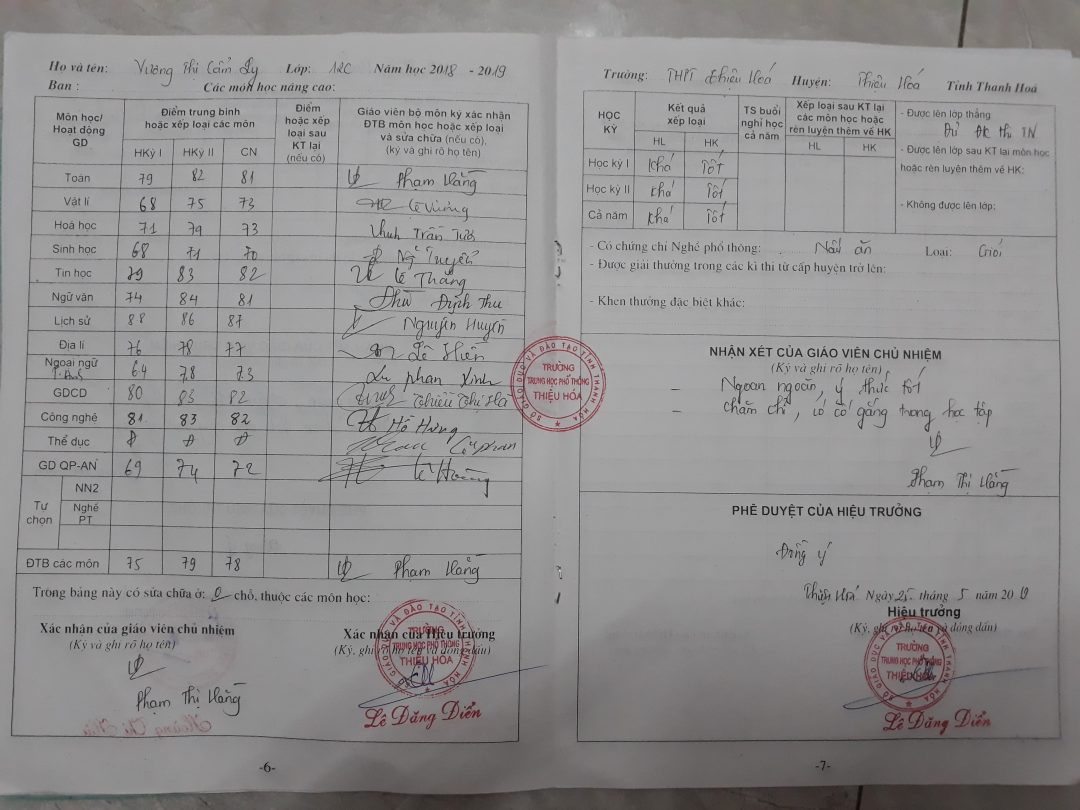 Họ và tên: Vương Thị Cẩm Ly Lớp: 12C Năm học 2018 - 2019
Ban : Các môn học nâng cao:
Môn học/ Hoạt động GD | Điểm trung bình hoặc xếp loại các môn | Điểm hoặc xếp loại sau KT lại (nếu có) | Giáo viên bộ môn ký xác nhận ĐTB môn học hoặc xếp loại và sửa chữa (nếu có). (ký và ghi rõ họ tên)
HKỳ I | HKỳ II | CN
Toán 79 82 81 Phạm Hằng
Vật lí 68 75 73 Lê Vương
Hoá học 71 79 73 Trần
Sinh học 68 71 70 Tuyển
Tin học 79 83 82 Lê Thắng
Ngữ văn 74 84 81 Định Thu
Lịch sử 88 86 87 Nguyễn Huyền
Địa lí 76 78 77 Lê Hiền
Ngoại ngữ T.Anh 64 78 73 phan
GDCD 80 83 82 Thiều Thị Hà
Công nghệ 81 83 82 Hưng
Thể dục Đ Đ Đ
GD QP-AN 69 74 72 Lê Hoàng
Tự chọn
NN2
Nghề PT
ĐTB các môn 75 79 78 Phạm Hằng
Trong bảng này có sửa chữa ở: 0 chỗ, thuộc các môn học:
Xác nhận của giáo viên chủ nhiệm
(Ký và ghi rõ họ tên)
Phạm Thị Hằng
Xác nhận của Hiệu trưởng
(Ký, ghi rõ họ tên và đóng dấu)
SỞ GIÁO DỤC VÀ ĐÀO TẠO TỈNH THANH HÓA
TRƯỜNG
TRUNG HỌC PHỔ THÔNG
THIỆU HÓA
Lê Đăng Diển
-6-
SỞ GIÁO DỤC VÀ ĐÀO TẠO TỈNH THANH HÓA
TRƯỜNG
TRUNG HỌC PHỔ THÔNG
THIỆU HÓA
Trường: THPT Thiệu Hoá Huyện: Thiệu Hoá Tỉnh Thanh Hoá
HỌC KỲ | Kết quả xếp loại | TS buổi nghỉ học cả năm | Xếp loại sau KT lại các môn học hoặc rèn luyện thêm về HK
HL | HK | HL | HK
Học kỳ I Khá Tốt
Học kỳ II Khá Tốt
Cả năm Khá Tốt
- Được lên lớp thẳng
Đủ ĐK thi TN
- Được lên lớp sau KT lại môn học
hoặc rèn luyện thêm về HK:
- Không được lên lớp:
- Có chứng chỉ Nghề phổ thông: Nấu ăn Loại: Giỏi
- Được giải thưởng trong các kì thi từ cấp huyện trở lên:
- Khen thưởng đặc biệt khác:
NHẬN XÉT CỦA GIÁO VIÊN CHỦ NHIỆM
(Ký và ghi rõ họ tên)
- Ngoan ngoãn, ý thức tốt
- chăm chỉ, có cố gắng trong học tập
Phạm Thị Hằng
PHÊ DUYỆT CỦA HIỆU TRƯỞNG
Đồng ý
Thiệu Hoá Ngày 25 tháng 5 năm 2019
Hiệu trưởng
(Ký, ghi rõ họ tên và đóng dấu)
SỞ GIÁO DỤC VÀ ĐÀO TẠO TỈNH THANH HÓA
TRƯỜNG
TRUNG HỌC PHỔ THÔNG
THIỆU HÓA
Lê Đăng Diển
-7-